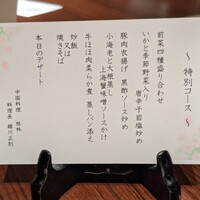 ～特別コース～
前菜四種盛り合わせ
いかと季節野菜入り
唐辛子岩塩炒め
豚肉衣揚げ 黒酢ソース炒め
小海老と大根蒸し
上海蟹味噌ソースかけ
牛ほほ肉柔らか煮 蒸しパン添え
炒飯
又は
焼きそば
本日のデザート
中国料理
料理長